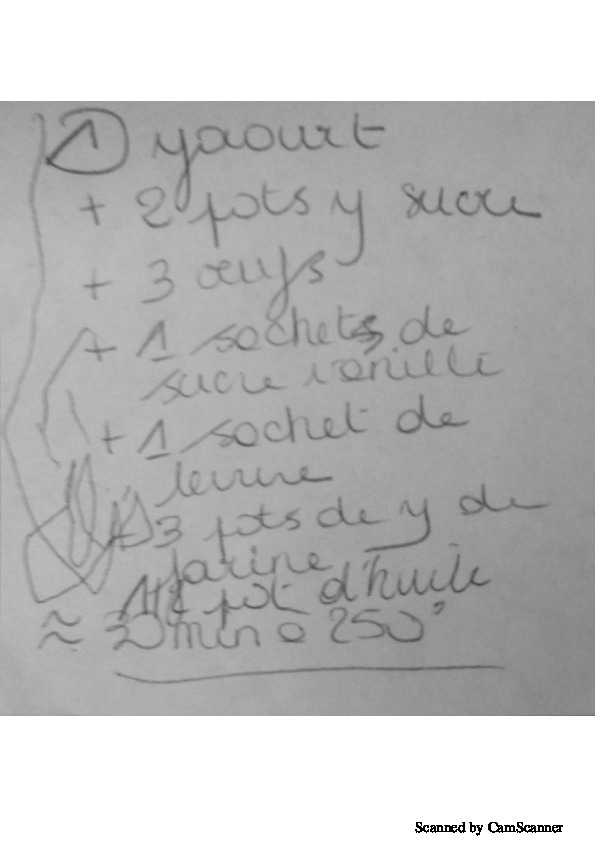 1 yaourt
+ 2 pots y sucre
+ 3 œufs
+ 1 sachets de
sucre vanille
+ 1 sachet de
levure
+ 3 pots de y de
farine
1/2 pot d'huile
≈ min a 250°
Scanned by CamScanner